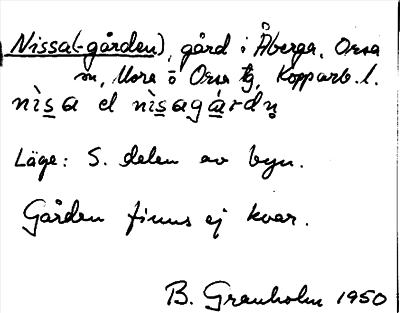 Nissa(-gården), gård i Åberga, Orsa
sn, Mora o Orsa tg, Kopparb. l.
nìsa el nìsagárdn̥
Läge: S. delen av byn.
Gården finns ej kvar.
B. Granholm 1950